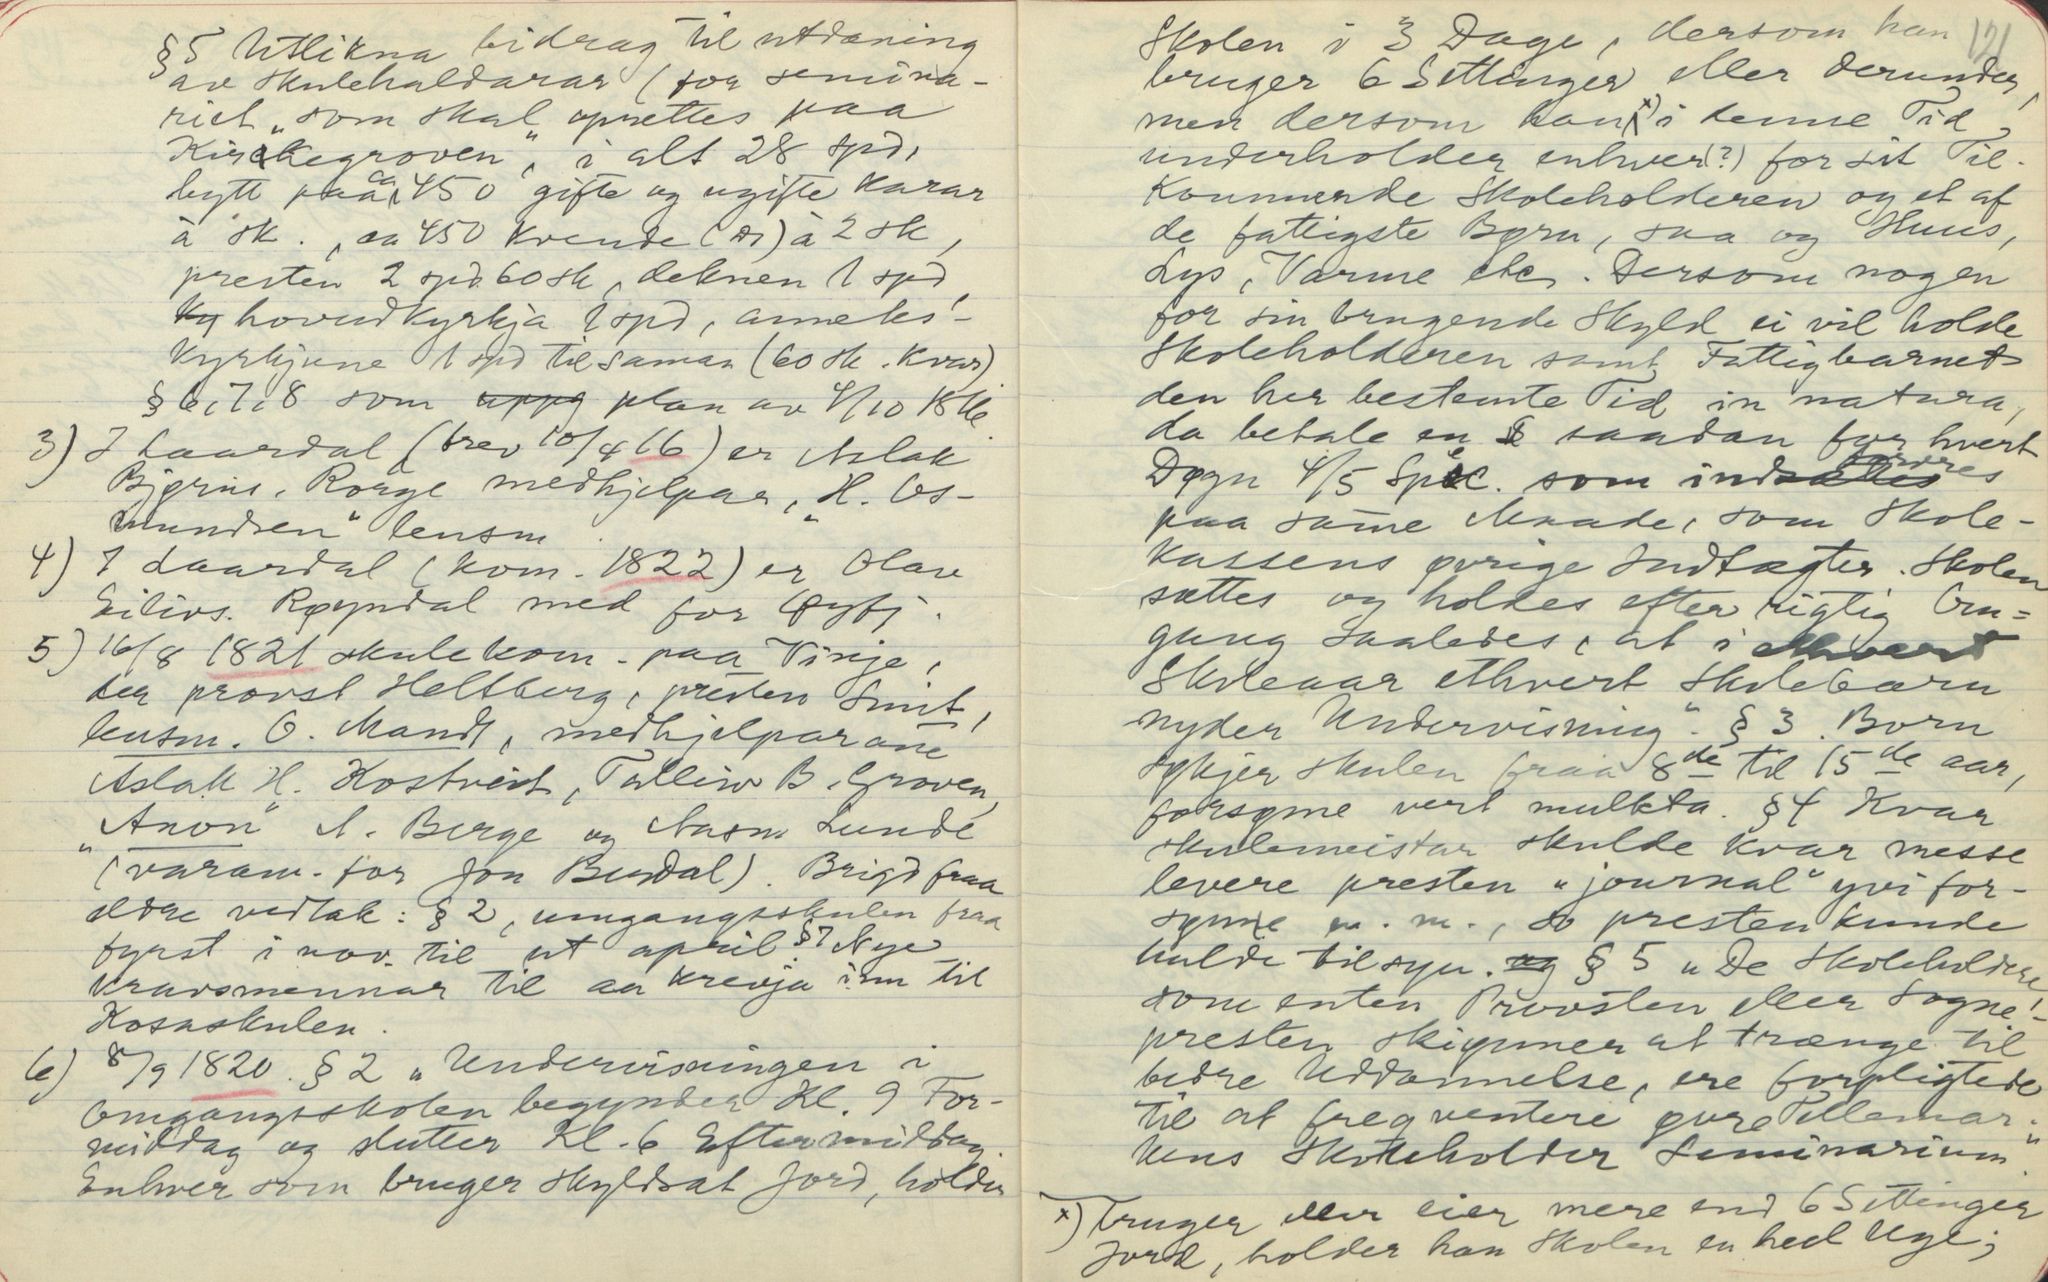 §5 Utlikna bidrag til utdaning
av skulehaldarar (for semina-
riet „som skal" oprettes paa
Kirkegroven", i alt 28 spd,
bytt paa ca 450 gifte og ugifte karar
à sk., ca 450 kvende (?) à 2 sk,
presten 2 spd 60 sk, deknen 1 spd,
hovudkyrkja 1 spd, anneks-
kyrkjune 1 spd tilsaman (60 sk. kvar)
§ 6, 7, 8 som uppg plan av 4/10 1816.
3) I Laardal (brev 10/4 16) er Aslak
Bjørns. Rorge medhjelpar, „H. Os-
mundsen" lensm.
4) I Laardal (kom. 1822) er Olav
Eilivs. Røyndal med for Øyfj.
5) 16/8 1821 skulekom. paa Vinje,
der provst Heltberg, presten Smit,
lensm. O. Mandt, medhjelparane
Aslak H. Kostveit, Talleiv B. Groven,
„Anon" A. Berge og Aasm Lunde
(varam. for Jon Burdal). Brigd fraa
eldre vedtak: § 2, umgangsskulen fraa
fyrst i nov. til ut april. §7 Nye
kravsmennar til aa krevja inn til
Kosaskulen.
6) 8/9 1820. § 2 „Undervisningen i
Omgangsskolen begynder Kl. 9 For-
middag og slutter Kl. 6 Eftermiddag.
Enhver som bruger skyldsat Jord, holder
121
Skolen i 3 Dage, dersom han
bruger 6 Settinger eller derunder,
men dersom han x) i denne Tid
underholder enhver (?) for sit Til-
kommende Skoleholderen og et af
de fattigste Børn, saa og Huus,
Lys, Varme etc. Dersom nogen
for sin brugende Skyld ei vil holde
Skoleholderen samt Fattigbarnet
den her bestemte Tid in natura,
da betale en saadan for hvert
Døgn 4/5 Spec. som inddrives
paa same Maade, som Skole-
kassens øvrige Indtægter. Skolen
sættes og holdes efter rigtig Om-
gang saaledes, at i ethvert
Skoleaar ethvert Skolebarn
nyder Undervisning". § 3. Born
søkjer skulen fraa 8de til 15de aar,
forsøme vert mulkta. §4 Kvar
skulemeistar skulde kvar messe
levere presten „journal" yvi for-
søme m. m., so presten kunde
halde tilsyn. og § 5 „De Skoleholdere,
som enten Provsten eller Sogne-
presten skiønner at trænge til
bedre Uddannelse, ere forpligtede
til at freqventere øvre Tellemar-
kens Skoleholder Seminarium."
x) bruger eller eier mere end 6 Settinger
Jord, holder han Skolen en heel Uge;